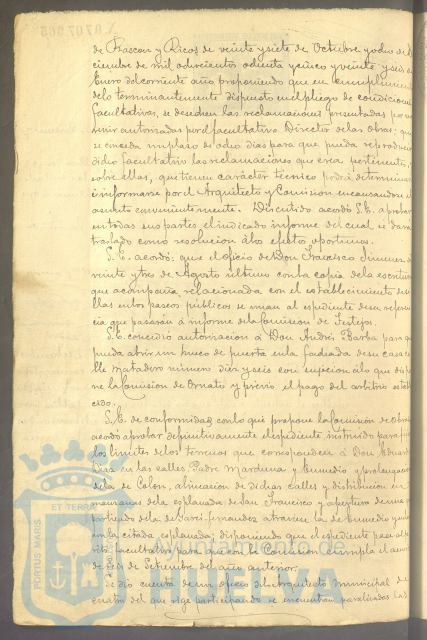 de Rascon y Ricos de veinte y siete de Octubre y ocho de Di
ciembre de mil ochocientos ochenta y cinco y veinte y seis de
Enero del corriente año, proponiendo que en cumplimiento
de lo terminantemente dispuesto en el pliego de condiciones
facultativas, se desechen las reclamaciones presentadas por
autorizadas por el facultativo Director de las obras; que
se conceda un plazo de ocho dias para que pueda reproducir
dicho facultativo las reclamaciones que crea pertinentes, y
sobre ellas, que tienen carácter técnico podrá determinar
é informarse por el Arquitecto y Comision encausandose el
asunto convenientemente. Discutido acordó S.E. aprobar
en todas sus partes el indicado informe del cual se dará
traslado como resolucion á los efectos oportunos.
S.E. acordó: que el oficio de Don Francisco Jimenez de
veinte y tres de Agosto último con la copia de la escritura
que acompaña relacionada con el establecimiento de si
llas en los paseos públicos se unan al espediente de su referen
cia que pasarán á informe de la Comision de Festejos.
S.E. concedió autorizacion á Don Andrés Barba para que
pueda abrir un hueco de puerta en la fachada de su casa ca
lle Matadero número diez y seis con sujecion á lo que dispo
ne la Comision de Ornato y previo el pago del arbitrio estable
cido.
S.E. de conformidad con lo que propone la Comision de Obras
acordó aprobar definitivamente el espediente instruido para fijar
los limites de los terrenos que corresponden á Don Eduardo
Diaz en las calles Padre Marchena y Bumedio y prolongacion
de la de Colon, alineacion de dichas calles y distribucion en
manzanas de la esplanada de San Francisco y apertura de una
de la de Garci-Fernandez atraviesa la de Bumedio y
en la citada esplanada; disponiendo que el espediente pase al
facultativo para que con la Comision cumpla el acuerdo
de seis de Setiembre del año anterior.
Se dió cuenta de un oficio del Arquitecto municipal de
cuatro del que rige participando se encuentran paralizadas las
PORTUS MARIS ET TERRAE
Ayuntamiento de
HUELVA